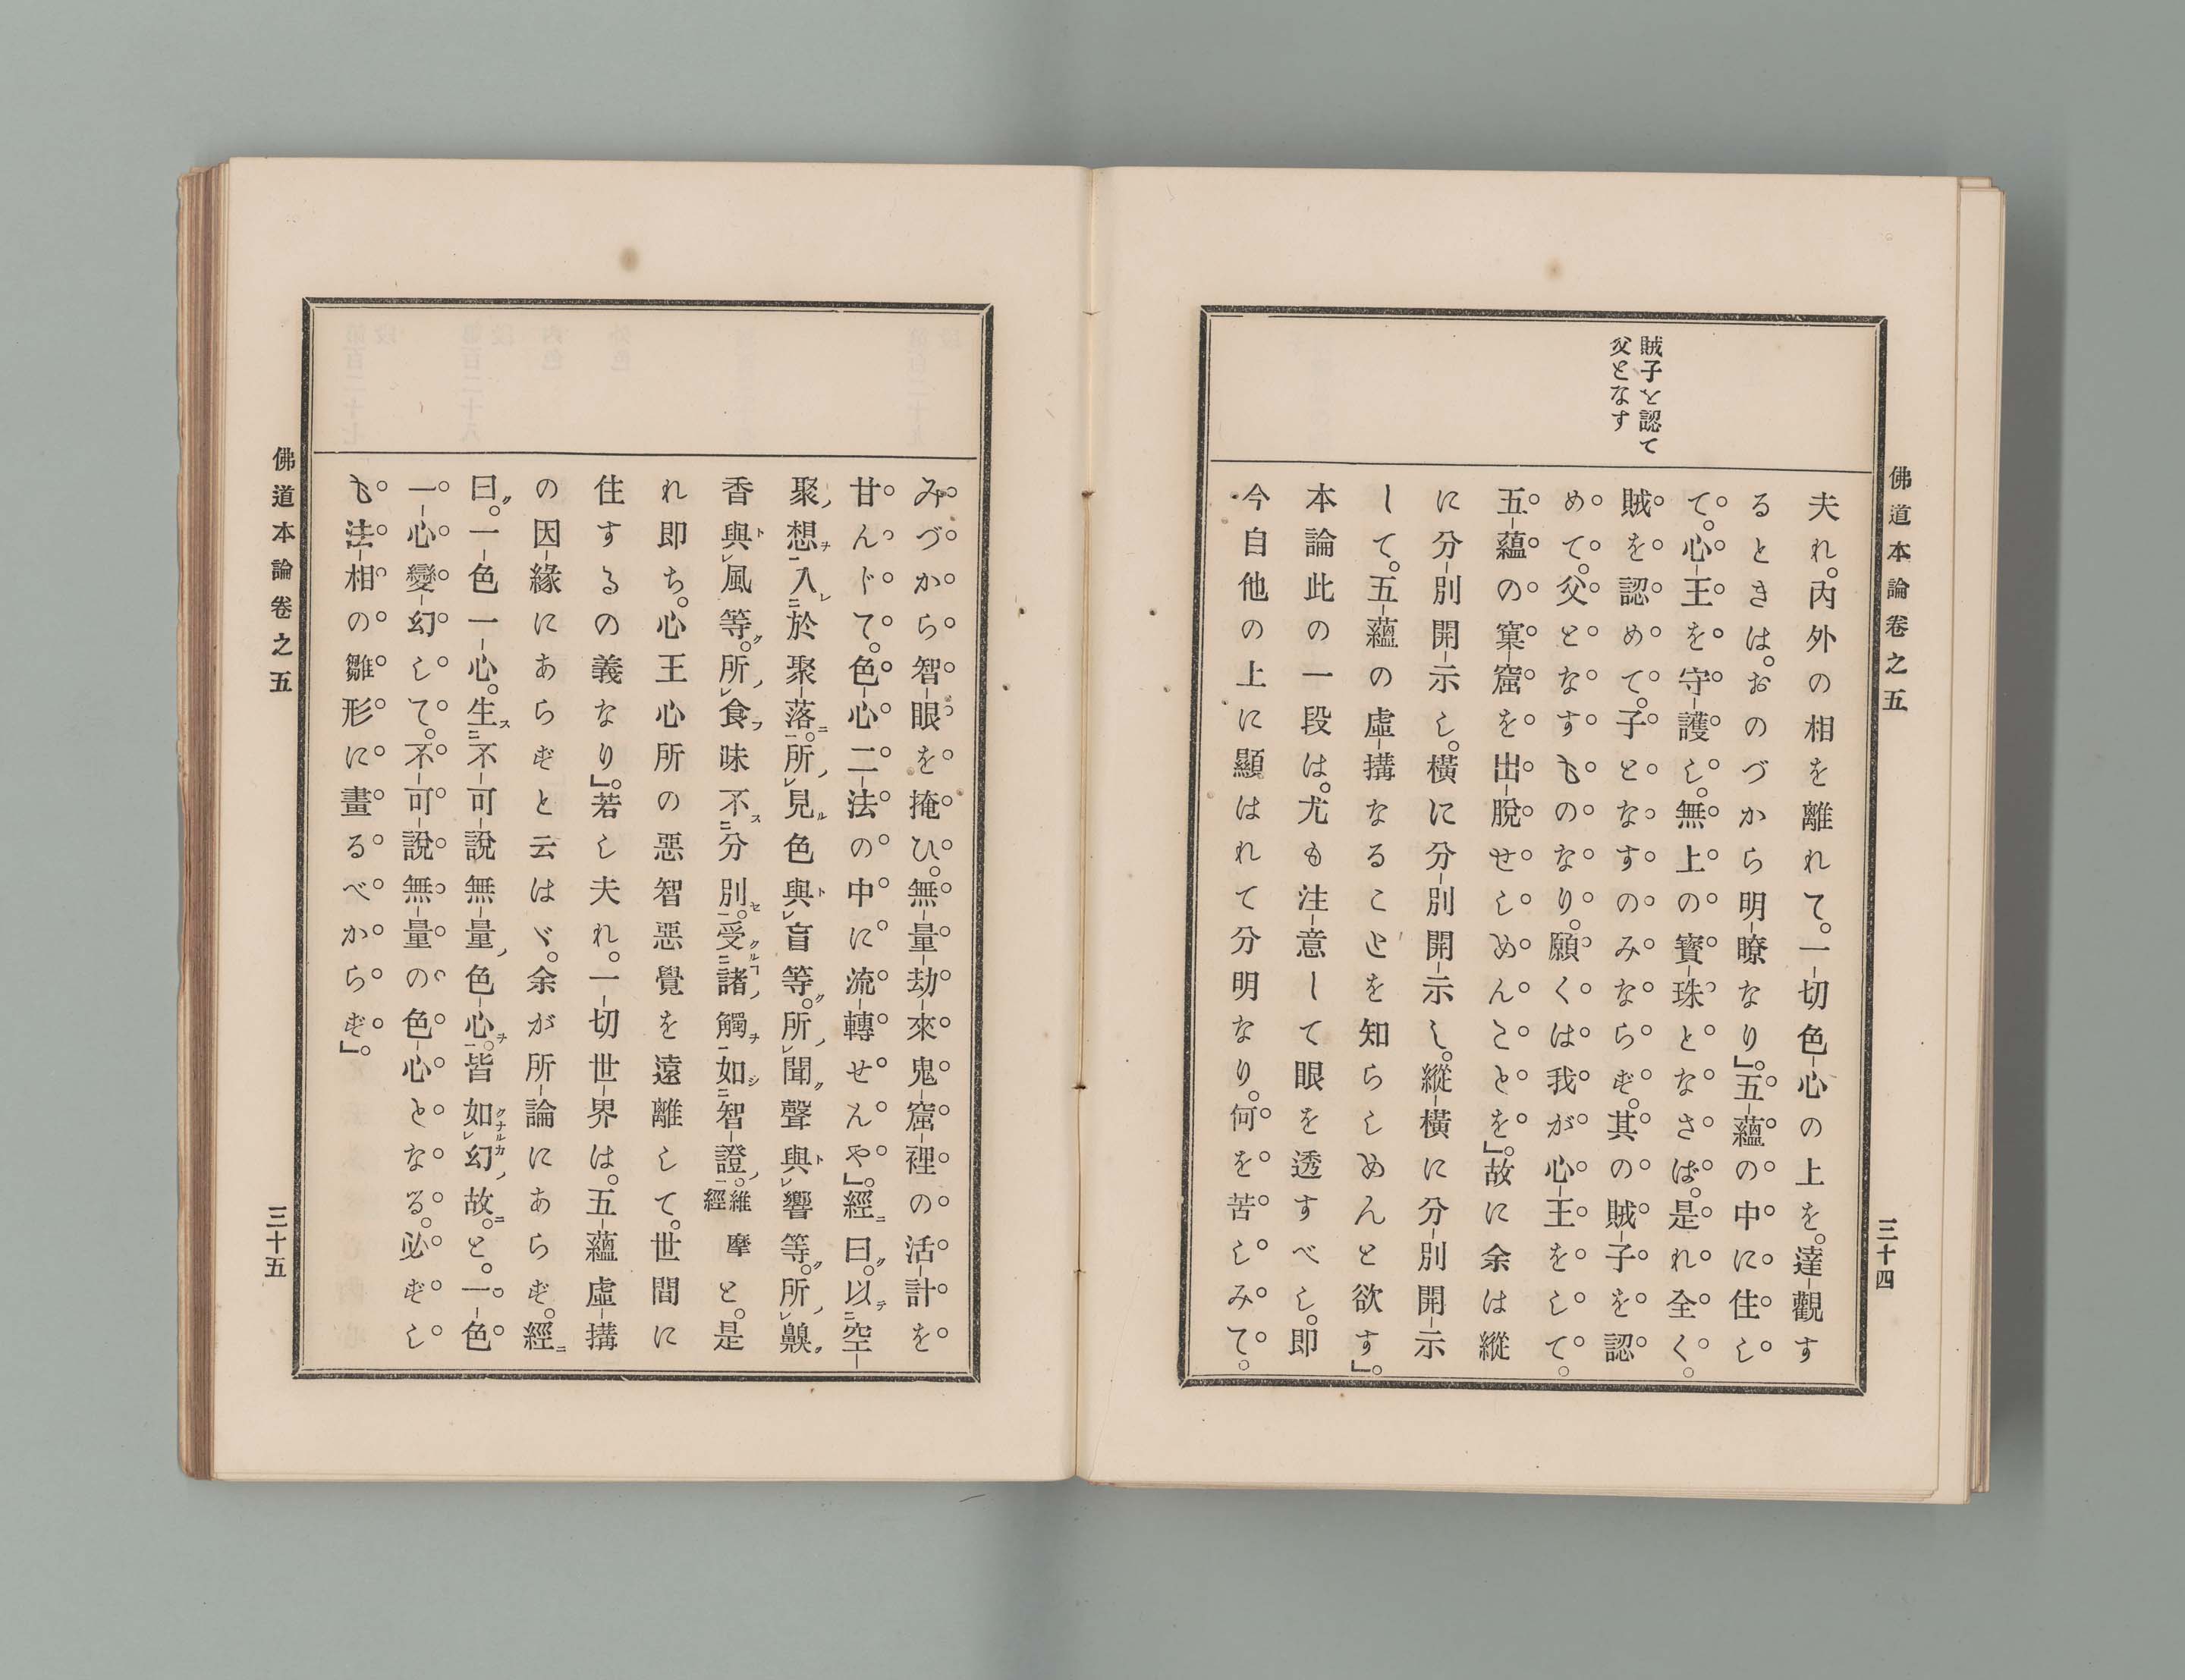 佛道本論卷之五
三十四
賊子を認て
父となす
夫れ。内外の相を離れて。一切色心の上を。達觀す
るときは。おのづから明瞭なり』。五蘊の中に住し
て。心王を守護し。無上の寶珠となさば。是れ全く。
賊を認めて。子となすのみならず。其の賊子を認
めて。父となすものなり。願くは我が心王をして。
五蘊の窠窟を出脫せしめんことを』。故に余は縱
に分別開示し。橫に分別開示し。縱橫に分別開示
して。五蘊の虛搆なることを知らしめんと欲す』。
本論此の一段は。尤も注意して眼を透すべし。即
今自他の上に顯はれて分明なり。何を苦しみて。
みづから智眼を掩ひ。無量劫來鬼窟裡の活計を
甘んドて。色心二法の中に流轉せんや』。經ニ曰ク。以テ二空
聚ノ想ヲ一入レ二於聚落ニ一。所ノレ見ル色與トレ盲等ク。所ノレ聞ク聲與トレ響等ク。所ノレ齅ク
香與トレ風等ク。所ノレ食フ味不ス二分別セ一。受クルコ二諸ノ觸ヲ一如シ二智證ノ一。維摩經と。是
れ即ち。心王心所の惡智惡覺を遠離して。世間に
住するの義なり』。若し夫れ。一切世界は。五蘊虛搆
の因緣にあらずと云はゞ。余が所論にあらず。經ニ
曰ク。一色一心。生ス二不可說無量ノ色心ヲ一。皆如クナルカレ幻ノ故ニ。と。一色
一心變幻して。不可說無量の色心となる。必ずし
も法相の雛形に畫るべからず』。
佛道本論卷之五
三十五